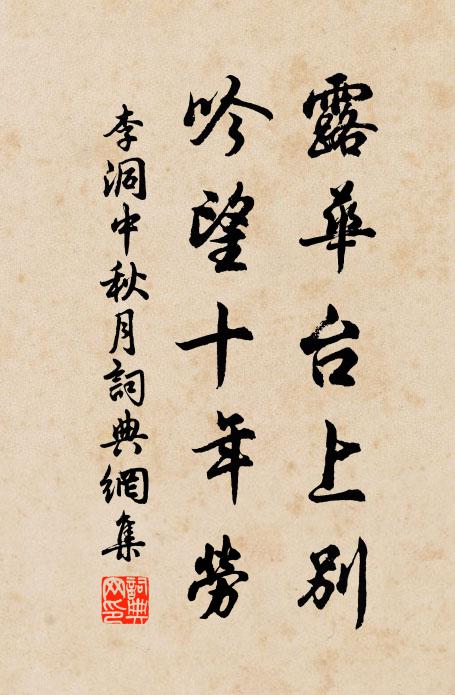 露華台上別
吟望十年勞
李洞中秋月詞典網集
詞典
网印